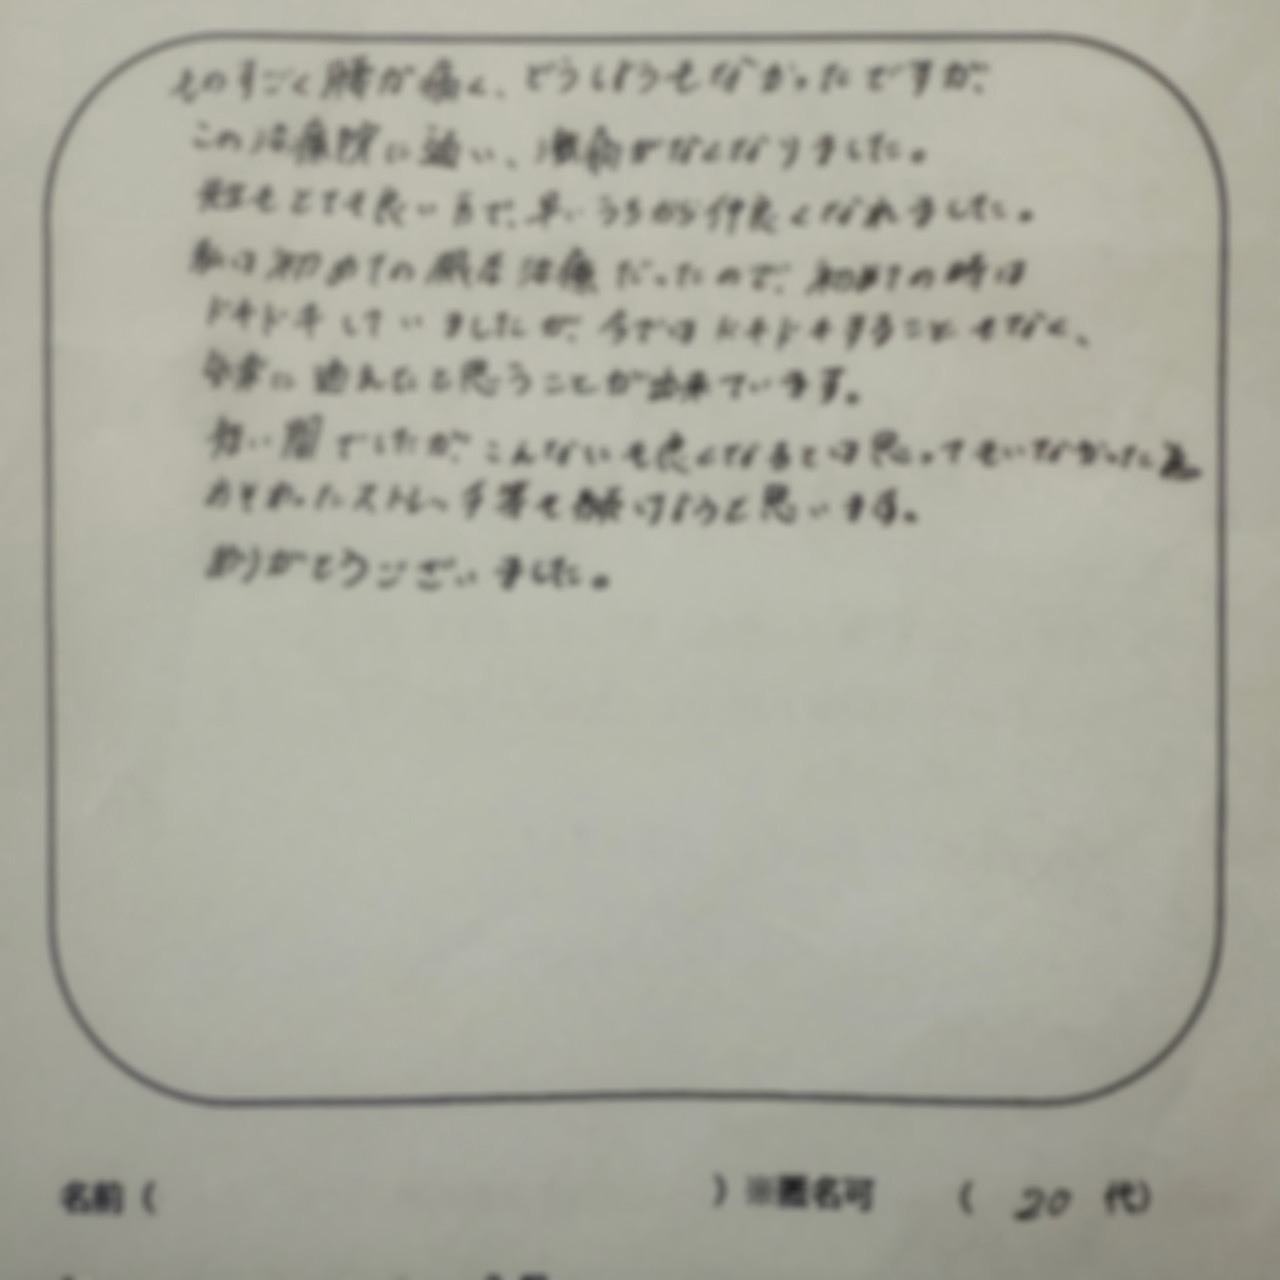 ものすごく腰が痛く、どうしようもなかったですが、
この治療院に通い、腰痛がなくなりました。
先生もとても良い方で、早いうちから仲良くなれました。
私は初めての鍼灸治療だったので、初めての時は
ドキドキしていましたが、今ではドキドキすることもなく、
に通えたと思うことが出来ています。
短い間でしたが、こんなにも良くなるとは思ってもいなかった
ストレッチ等も続けようと思います。
ありがとうございました。
名前( )※匿名可 ( 20 代)